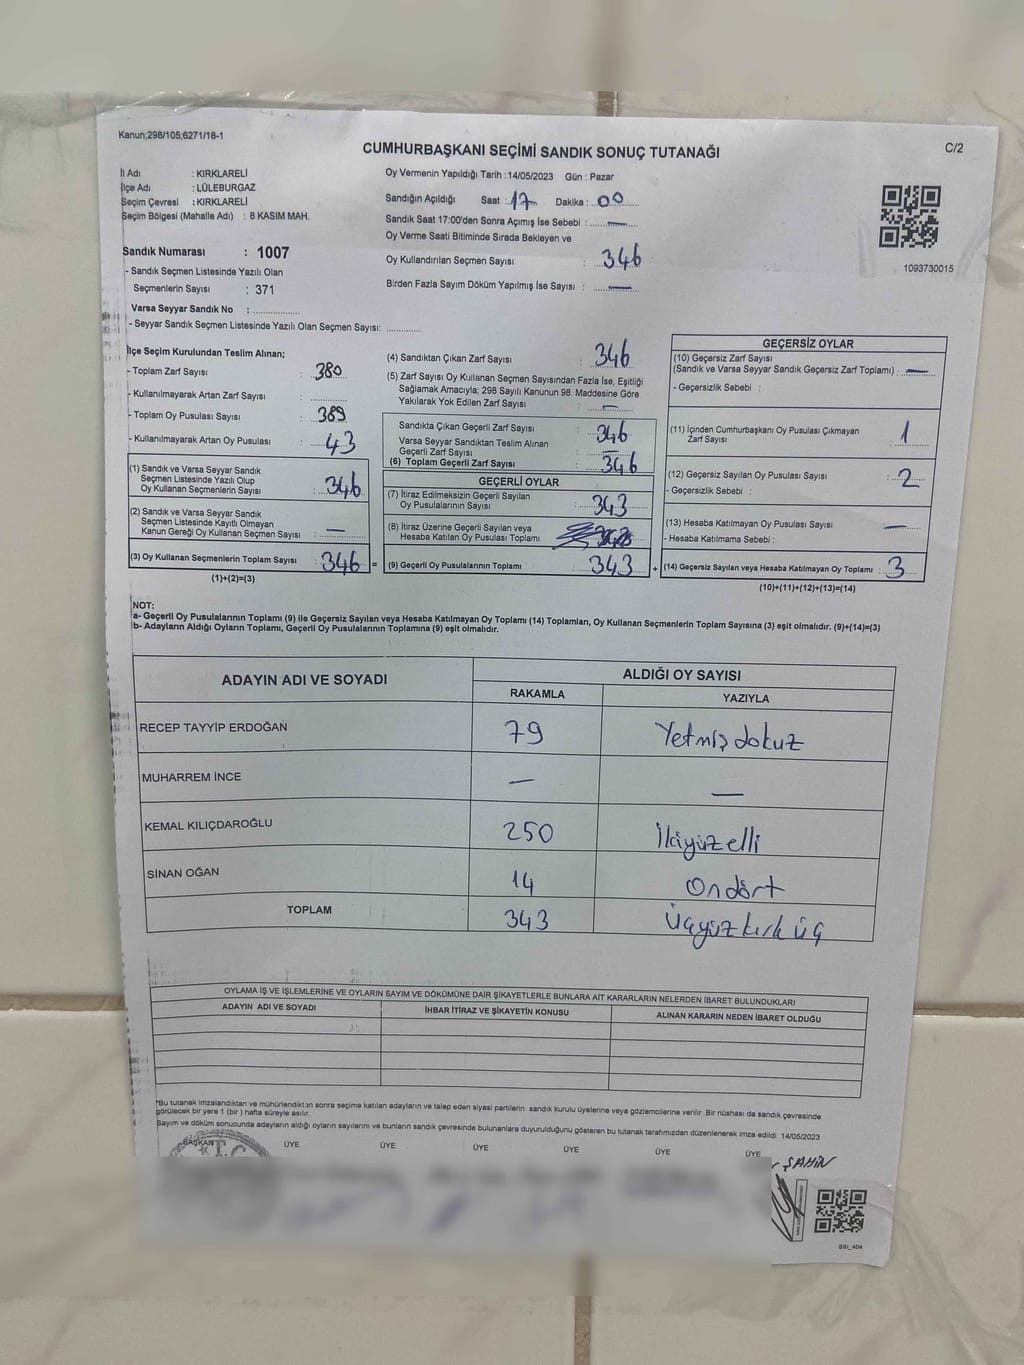 Kanun;298/105;6271/18-1
CUMHURBAŞKANI SEÇİMİ SANDIK SONUÇ TUTANAĞI
C/2
İl Adı : KIRKLARELİ
İlçe Adı : LÜLEBURGAZ
Seçim Çevresi : KIRKLARELİ
Seçim Bölgesi (Mahalle Adı) : 8 KASIM MAH.
Sandık Numarası : 1007
- Sandık Seçmen Listesinde Yazılı Olan
Seçmenlerin Sayısı : 371
Varsa Seyyar Sandık No : ..............
- Seyyar Sandık Seçmen Listesinde Yazılı Olan Seçmen Sayısı: ............
Oy Vermenin Yapıldığı Tarih : 14/05/2023 Gün : Pazar
Sandığın Açıldığı Saat : 17 Dakika : 00
Sandık Saat 17:00'den Sonra Açımış İse Sebebi : —
Oy Verme Saati Bitiminde Sırada Bekleyen ve
Oy Kullandırılan Seçmen Sayısı : 346
Birden Fazla Sayım Döküm Yapılmış İse Sayısı : —
1093730015
İlçe Seçim Kurulundan Teslim Alınan;
- Toplam Zarf Sayısı : 380
- Kullanılmayarak Artan Zarf Sayısı : ............
- Toplam Oy Pusulası Sayısı : 389
- Kullanılmayarak Artan Oy Pusulası : 43
(1) Sandık ve Varsa Seyyar Sandık
Seçmen Listesinde Yazılı Olup
Oy Kullanan Seçmenlerin Sayısı : 346
(2) Sandık ve Varsa Seyyar Sandık
Seçmen Listesinde Kayıtlı Olmayan
Kanun Gereği Oy Kullanan Seçmen Sayısı : —
(3) Oy Kullanan Seçmenlerin Toplam Sayısı : 346 =
(1)+(2)=(3)
(4) Sandıktan Çıkan Zarf Sayısı : 346
(5) Zarf Sayısı Oy Kullanan Seçmen Sayısından Fazla İse, Eşitliği
Sağlamak Amacıyla; 298 Sayılı Kanunun 98. Maddesine Göre
Yakılarak Yok Edilen Zarf Sayısı : —
Sandıkta Çıkan Geçerli Zarf Sayısı : 346
Varsa Seyyar Sandıktan Teslim Alınan
Geçerli Zarf Sayısı : —
(6) Toplam Geçerli Zarf Sayısı : 346
GEÇERLİ OYLAR
(7) İtiraz Edilmeksizin Geçerli Sayılan
Oy Pusulalarının Sayısı : 343
(8) İtiraz Üzerine Geçerli Sayılan veya
Hesaba Katılan Oy Pusulası Toplamı :
(9) Geçerli Oy Pusulalarının Toplamı : 343 +
GEÇERSİZ OYLAR
(10) Geçersiz Zarf Sayısı
(Sandık ve Varsa Seyyar Sandık Geçersiz Zarf Toplamı) : —
- Geçersizlik Sebebi :
(11) İçinden Cumhurbaşkanı Oy Pusulası Çıkmayan
Zarf Sayısı : 1
(12) Geçersiz Sayılan Oy Pusulası Sayısı : 2
- Geçersizlik Sebebi :
(13) Hesaba Katılmayan Oy Pusulası Sayısı : —
- Hesaba Katılmama Sebebi :
(14) Geçersiz Sayılan veya Hesaba Katılmayan Oy Toplamı : 3
(10)+(11)+(12)+(13)=(14)
NOT:
a- Geçerli Oy Pusulalarının Toplamı (9) ile Geçersiz Sayılan veya Hesaba Katılmayan Oy Toplamı (14) Toplamları, Oy Kullanan Seçmenlerin Toplam Sayısına (3) eşit olmalıdır. (9)+(14)=(3)
b- Adayların Aldığı Oyların Toplamı, Geçerli Oy Pusulalarının Toplamına (9) eşit olmalıdır.
ADAYIN ADI VE SOYADI ALDIĞI OY SAYISI
RAKAMLA YAZIYLA
RECEP TAYYİP ERDOĞAN 79 Yetmiş dokuz
MUHARREM İNCE — —
KEMAL KILIÇDAROĞLU 250 İkiyüz elli
SİNAN OĞAN 14 On dört
TOPLAM 343 Üçyüz kırk üç
OYLAMA İŞ VE İŞLEMLERİNE VE OYLARIN SAYIM VE DÖKÜMÜNE DAİR ŞİKAYETLERLE BUNLARA AİT KARARLARIN NELERDEN İBARET BULUNDUKLARI
ADAYIN ADI VE SOYADI İHBAR İTİRAZ VE ŞİKAYETİN KONUSU ALINAN KARARIN NEDEN İBARET OLDUĞU
*Bu tutanak imzalandıktan ve mühürlendikten sonra seçime katılan adayların ve talep eden siyasi partilerin sandık kurulu üyelerine veya gözlemcilerine verilir. Bir nüshası da sandık çevresinde
görülecek bir yere 1 (bir) hafta süreyle asılır.
Sayım ve döküm sonucunda adayların aldığı oyların sayılarını ve bunların sandık çevresinde bulunanlara duyurulduğunu gösteren bu tutanak tarafımızdan düzenlenerek imza edildi. 14/05/2023
BAŞKAN ÜYE ÜYE ÜYE ÜYE ÜYE ÜYE
T.C
ŞAHİN